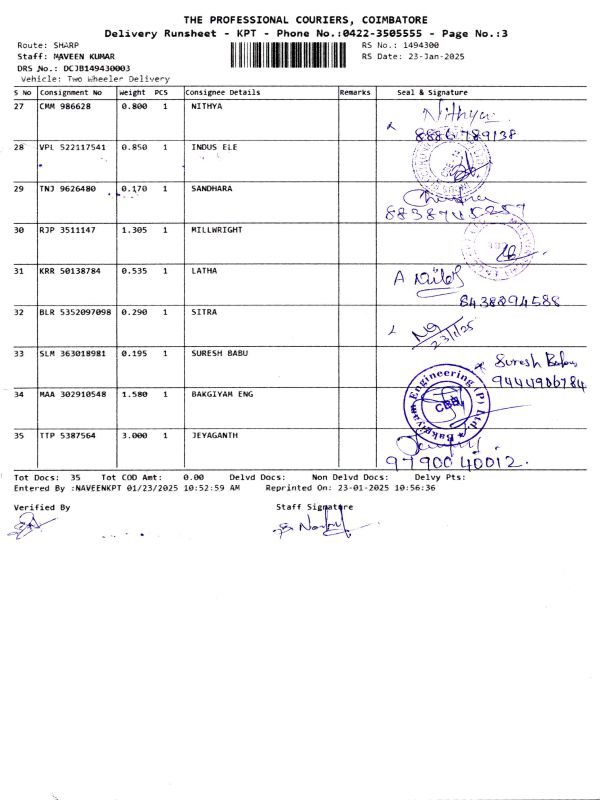 THE PROFESSIONAL COURIERS, COIMBATORE
Delivery Runsheet - KPT - Phone No.:0422-3505555 - Page No.:3
Route: SHARP RS No.: 1494300
Staff: NAVEEN KUMAR RS Date: 23-Jan-2025
DRS No.: DCJB149430003
Vehicle: Two Wheeler Delivery
S No Consignment No Weight PCS Consignee Details Remarks Seal & Signature
27 CMM 986628 0.800 1 NITHYA Nithya
8886789138
28 VPL 522117541 0.850 1 INDUS ELE
29 TNJ 9626480 0.170 1 SANDHARA
8838745257
30 RJP 3511147 1.305 1 MILLWRIGHT
31 KRR 50138784 0.535 1 LATHA
8438294588
32 BLR 5352097098 0.290 1 SITRA
23/1/25
33 SLM 363018981 0.195 1 SURESH BABU Suresh Babu
9444906784
34 MAA 302910548 1.580 1 BAKGIYAM ENG Bakgiyam Engineering (P) Ltd. CBE
35 TTP 5387564 3.000 1 JEYAGANTH
9790040012.
Tot Docs: 35 Tot COD Amt: 0.00 Delvd Docs: Non Delvd Docs: Delvy Pts:
Entered By :NAVEENKPT 01/23/2025 10:52:59 AM Reprinted On: 23-01-2025 10:56:36
Verified By Staff Signature